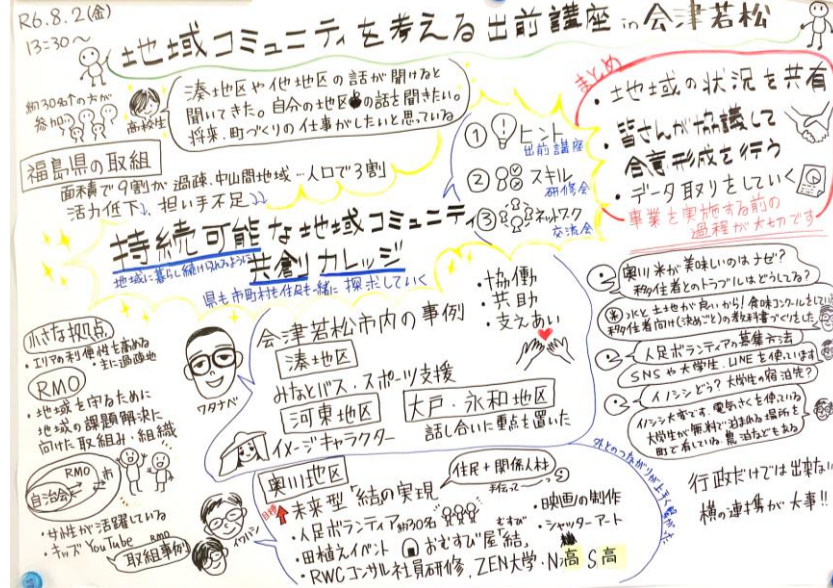 R6.8.2(金)
13:30～
地域コミュニティを考える出前講座 in 会津若松
約30名の方が
参加
高校生
湊地区や他地区の話が聞けると
聞いてきた。自分の地区の話を聞きたい。
将来、町づくりの仕事がしたいと思っている
福島県の取組
面積で9割が過疎、中山間地域…人口で3割
活力低下、担い手不足
持続可能な地域コミュニティ
地域に暮らし続けられるように
共創カレッジ
県も市町村も住民も一緒に探求していく
① ヒント
出前講座
② スキル
研修会
③ ネットワーク
交流会
まとめ
・地域の状況を共有
・皆さんが協議して
合意形成を行う
・データ取りをしていく
事業を実施する前の
過程が大切です
小さな拠点
・エリアの利便性を高める
・主に過疎地
RMO
・地域を守るために
地域の課題解決に
向けた取組み・組織
RMO
自治会
市
・女性が活躍している
・キッズYouTube
RMO
取組事例
ワタナベ
会津若松市内の事例
・協働
・共助
・支えあい
湊地区
みなとバス・スポーツ支援
河東地区
イメージキャラクター
大戸・永和地区
話し合いに重点を置いた
奥川地区
目標
未来型「結の実現」
住民+関係人材
手伝って
・人足ボランティア約30名
・田植えイベント
むすび
おむすび屋「結」
・RWCコンサル社員研修、ZEN大学・N高S高
・映画の制作
・シャッターアート
外とのつながりが上手く繋がった
奥川米が美味しいのはナゼ?
移住者とのトラブルはどうしてる?
米 水と土地が良いから!食味コンクールをしている
移住者向け(決めごと)の教科書づくりをした
人足ボランティアの募集方法
SNSや大学生、LINEを使っています
イノシシどう?大学生の宿泊先?
イノシシ大変です。電気さくを使っている
大学生が無料で泊まれる場所を
町で有している 農泊などもある
行政だけでは出来ない
横の連携が大事!!